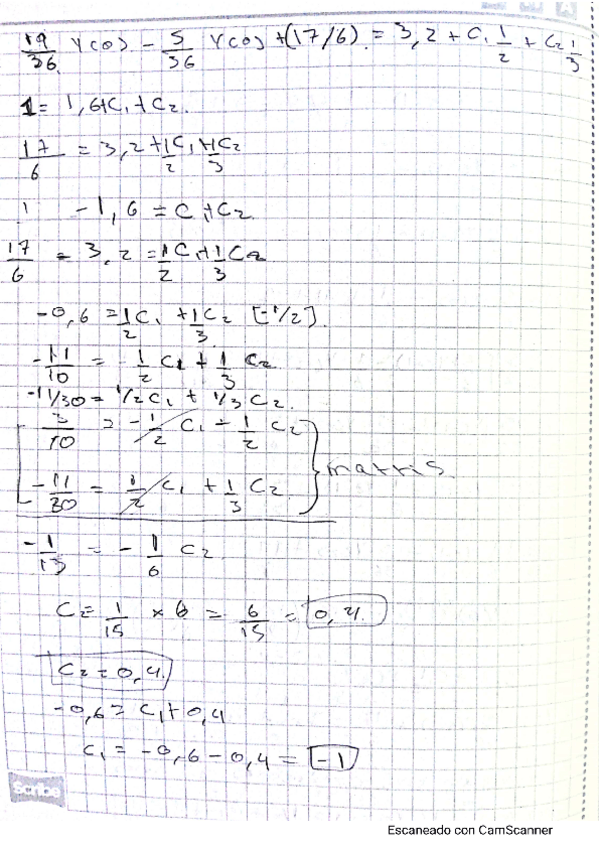 19/36 Y(0) - 5/36 Y(0) + (17/6) = 3,2 + C₁ 1/2 + C₂ 1/3
1 = 1,6 + C₁ + C₂.
17/6 = 3,2 + 1/2 C₁ + 1/3 C₂
1 - 1,6 = C₁ + C₂
17/6 - 3,2 = 1/2 C₁ + 1/3 C₂
-0,6 = 1/2 C₁ + 1/3 C₂ [-1/2].
-11/10 = -1/2 C₁ + 1/3 C₂
-11/30 = 1/2 C₁ + 1/3 C₂.
3/10 = -1/2 C₁ - 1/2 C₂
matris.
-11/30 = 1/2 C₁ + 1/3 C₂
-1/15 = -1/6 C₂
C₂ = 1/15 × 6 = 6/15 = 0,4.
C₂ = 0,4.
-0,6 = C₁ + 0,4
C₁ = -0,6 - 0,4 = -1
Scribe
Escaneado con CamScanner